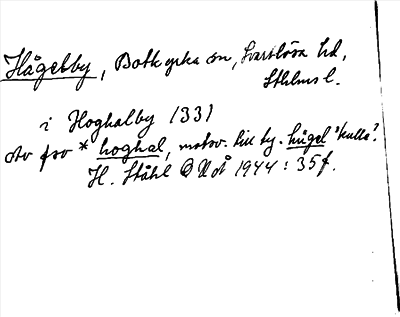 Hågelby, Botkyrka sn, Svartlösa hd,
Sthlms l.
i Hoghalby 1331
Av fsv * hoghal, motsv. till ty. hügel 'kulle'.
H. Ståhl OUÅ 1944 : 35 f.